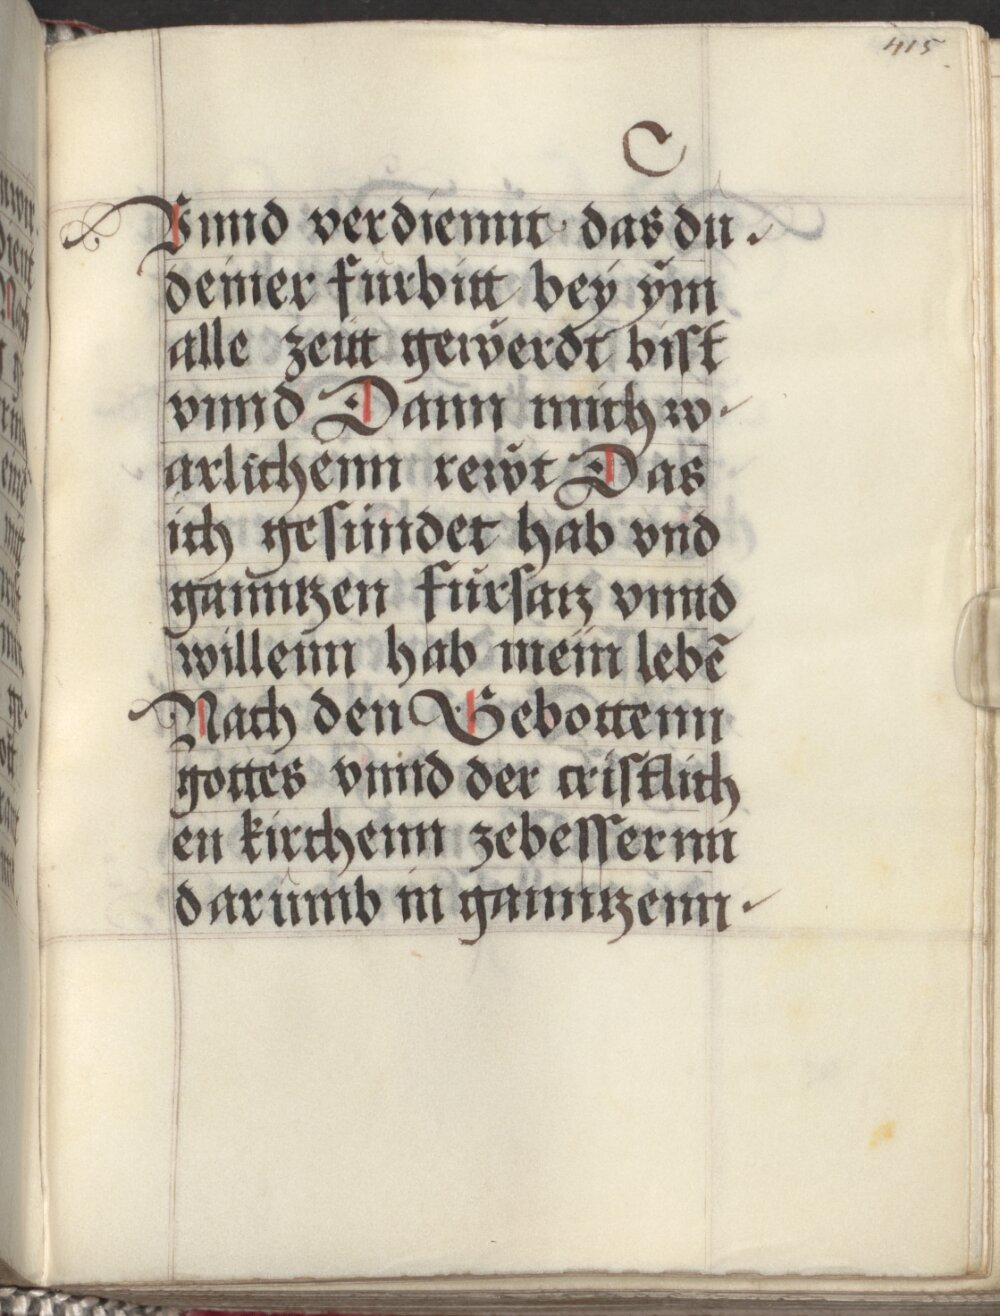 415.
C
Vnnd verdiennt das du
deiner fürbitt bey ÿm
alle zeitt gewerdt bist
vnnd Dann mich w
arlichenn rewt Das
ich gesündet hab vnd
ganntzen fürsatz vnnd
willenn hab mein lebē
Nach den Gebottenn
gottes vnnd der cristlich
en kirchenn zebessernn
darumb in ganntzenn